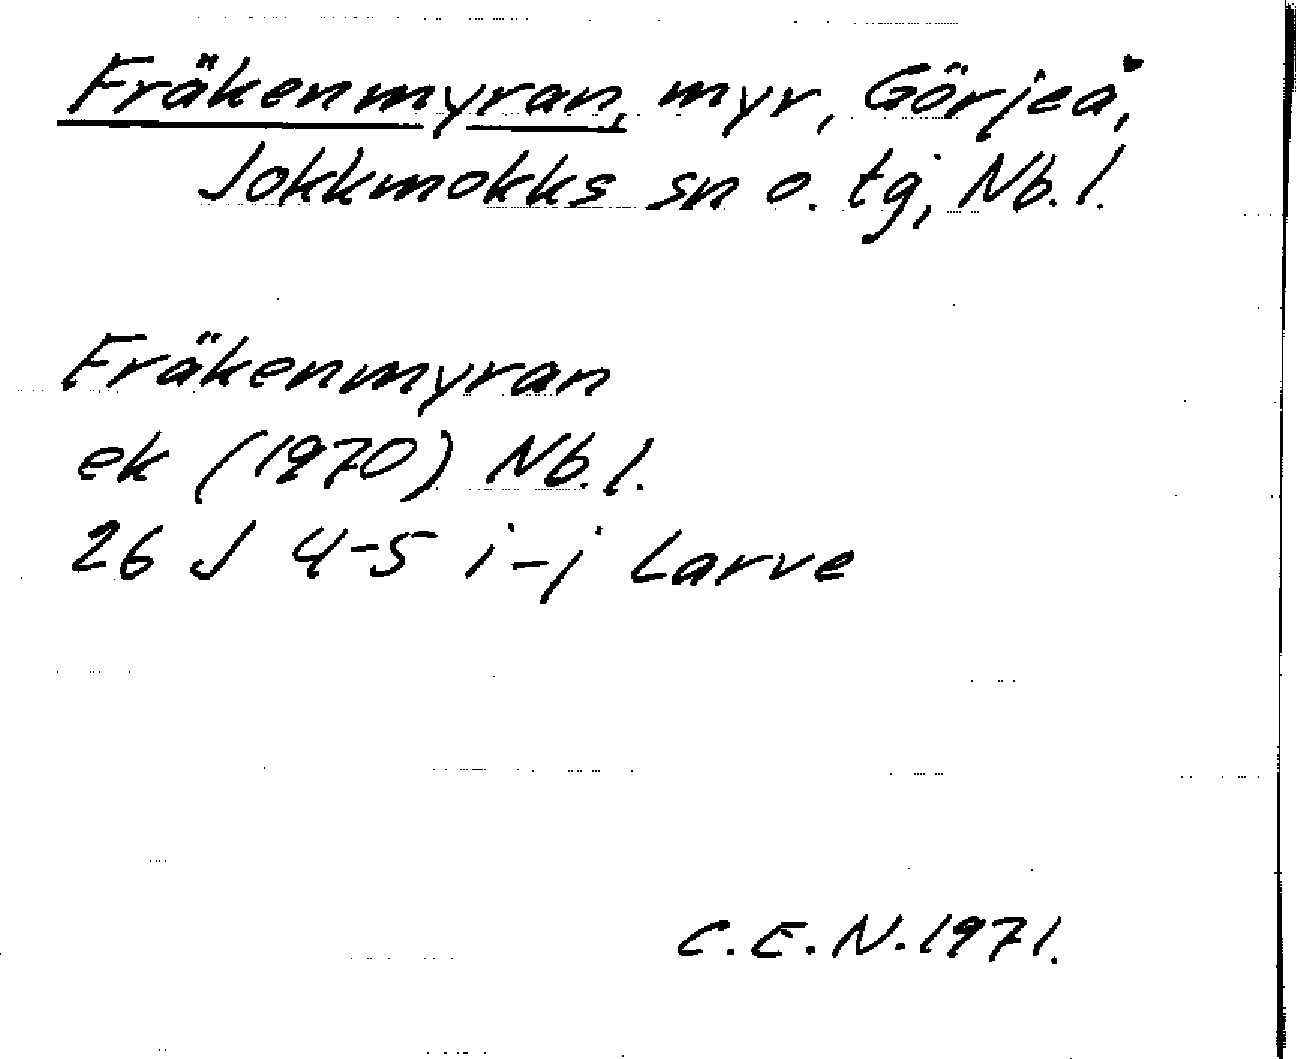 Fräkenmyran, myr, Görjeå,
Jokkmokks sn o. tg, Nb. l.
Fräkenmyran
ek (1970) Nb. l.
26 J 4-5 i-j Larve
C. E. N. 1971.